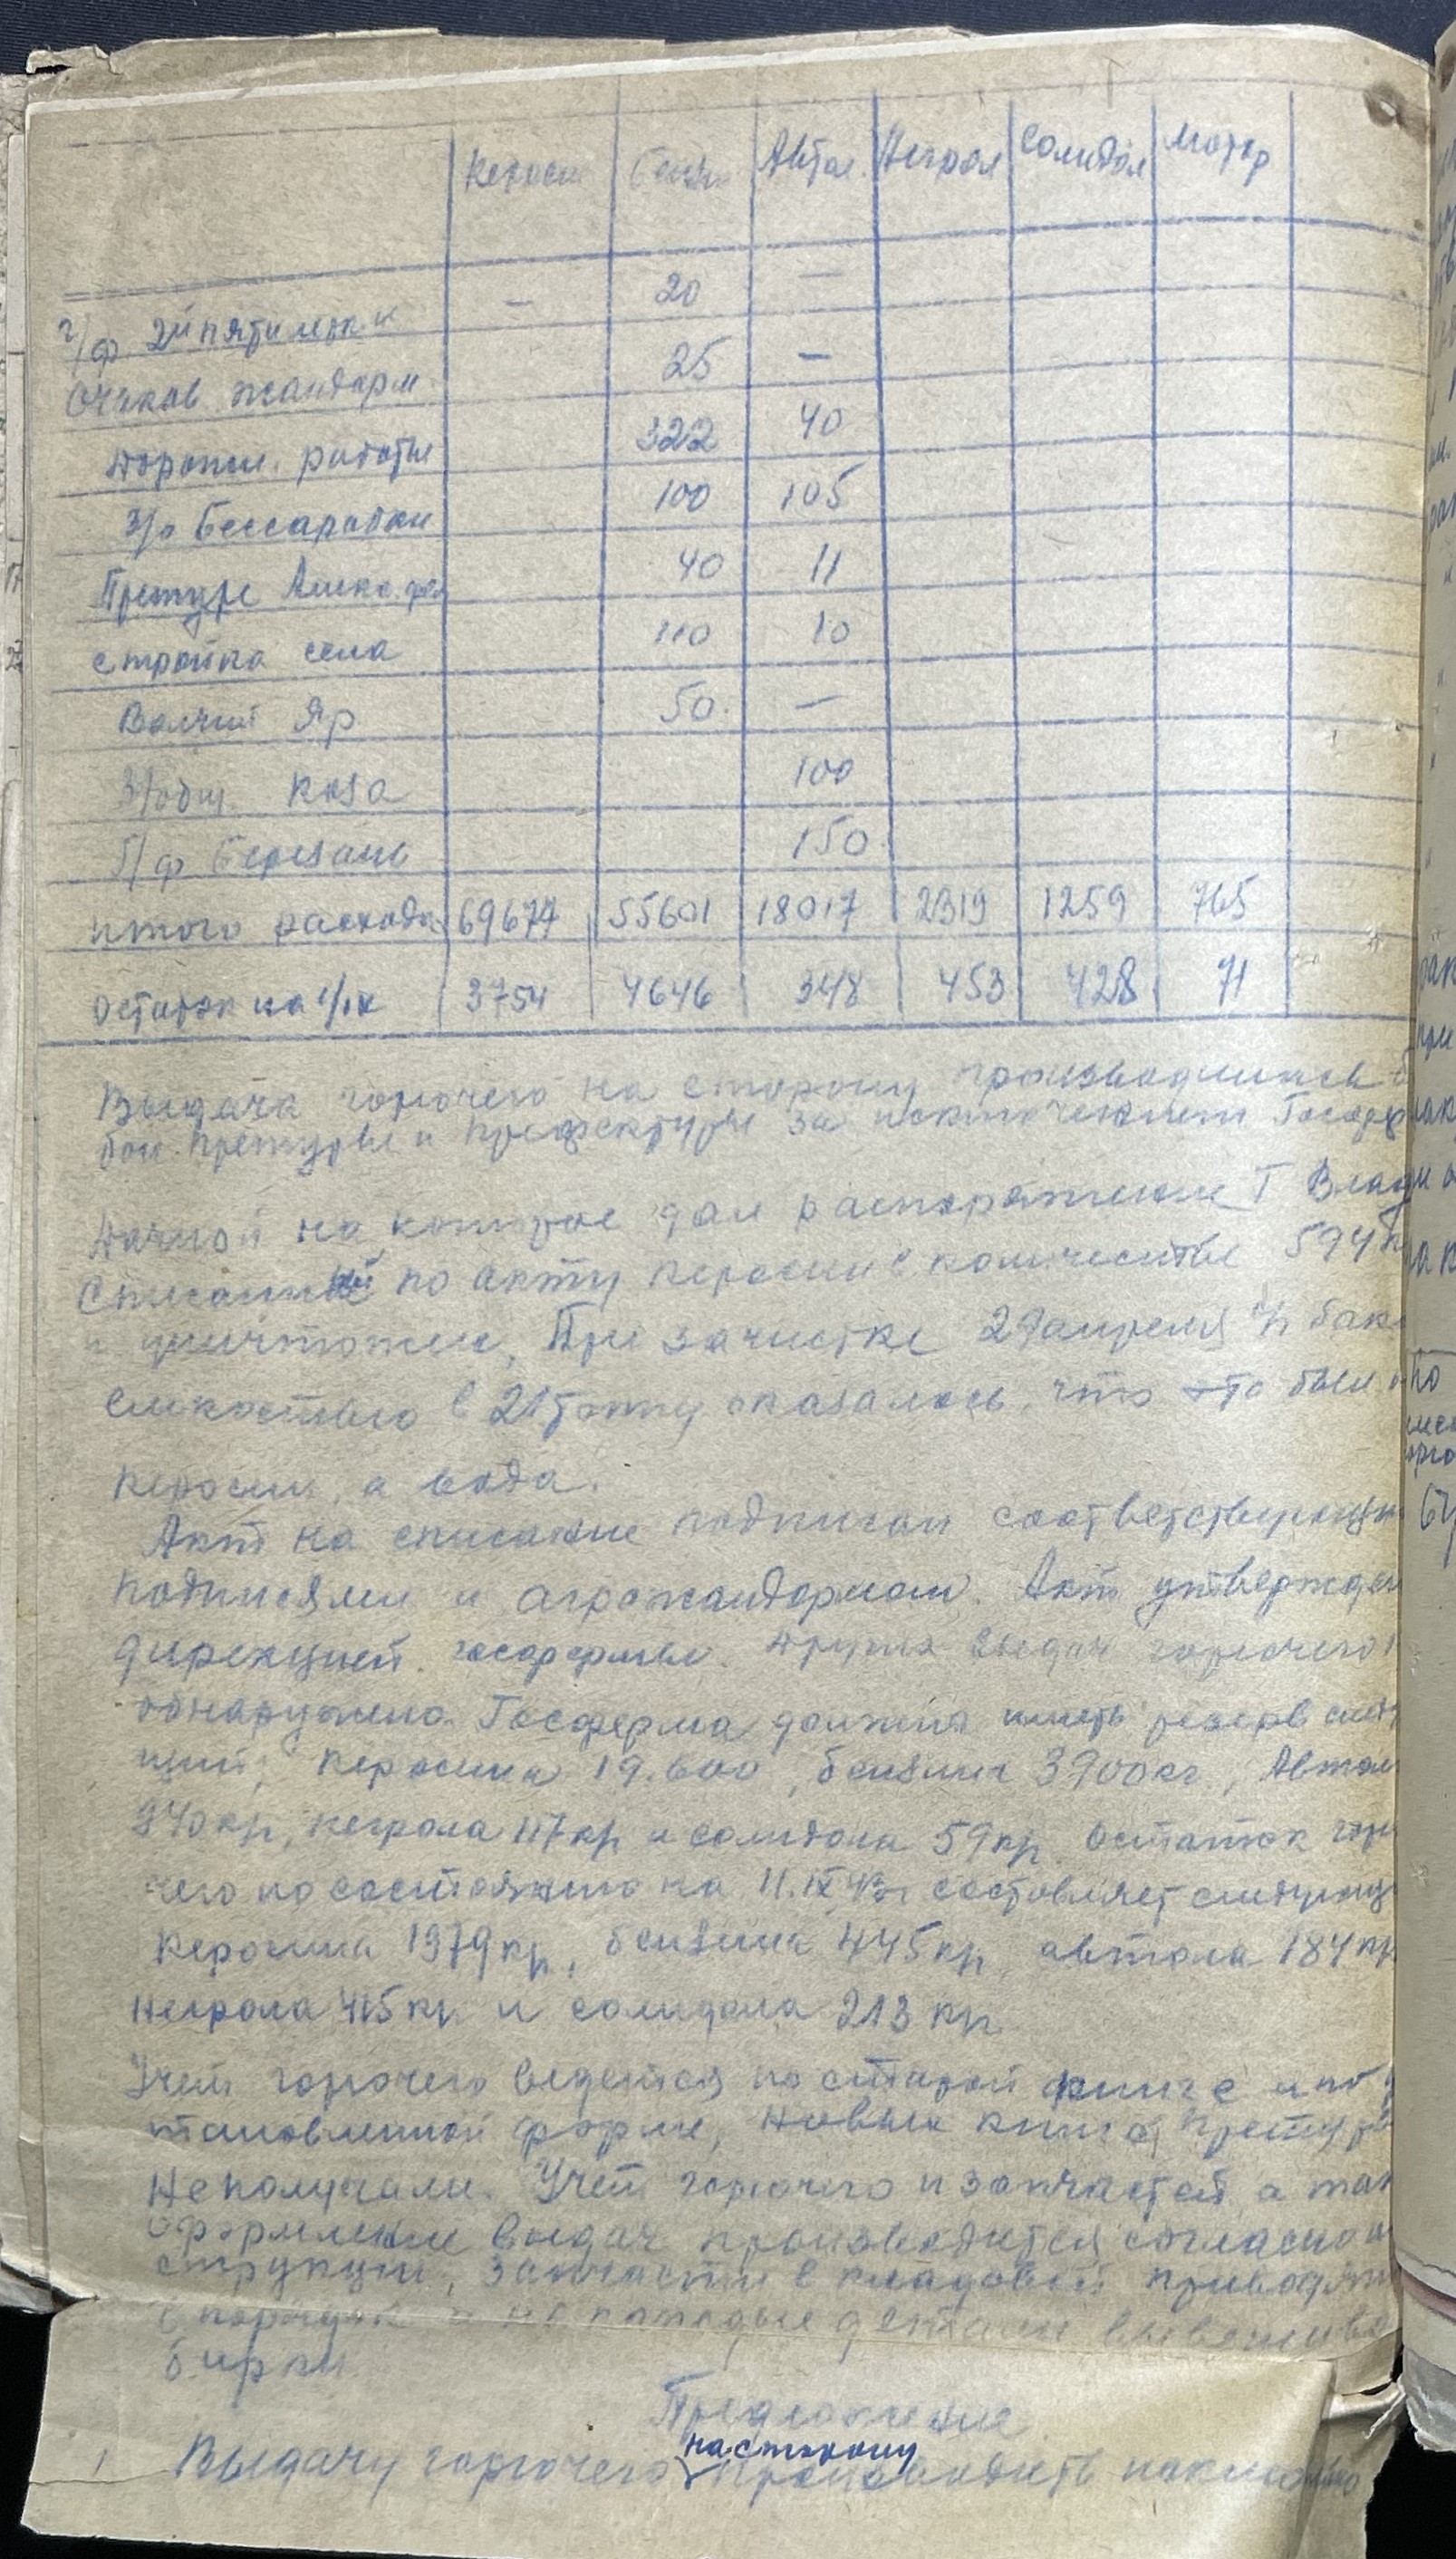 Керосин Бензин Автол Нигрол Солидол Мотор
г/ф 2й пятилетки — 20 —
Очаков жандарм. 25 —
Дорожн. работы 322 40
З/о Бессарабки 100 105
Претуре 40 11
стройка села 110 10
Волчий Яр 50 —
З/общ. Коза 100
Г/ф Березань 150
итого расхода 69677 55601 18017 2319 1259 765
Остаток на 3754 4646 348 453 428 71
Выдача горючего на сторону производилась
Претуры и Префектуры за исключением Госфер
Дачной на которые дал распоряжение Г
по акту керосин в количестве 594
и уничтожен. При зачистке 29 апреля бак
емкостью в 21 тонну оказалось, что это был
керосин, а вода.
Акт на списание подписан соответствующ
подписями и агрожандармом. Акт утвержден
дирекцией госфермы. Других выдач горючего
обнаружено. Госферма должна иметь резерв след
ций; керосина 19.600, бензина 3900 кг, Автол
940 кгр, негрола 117 кгр и солидола 59 кгр. Остаток горю
чего по состоянию на 11.IX 43 г составляет следующ
Керосина 1979 кгр, бензина 445 кгр, автола 184 кгр
Негрола 415 кгр и солидола 213 кгр
Учет горючего ведется по старой книге и по
тановленной форме, новых книг Претура
Не получали. Учет горючего и запчастей а так
оформление выдач производится согласно ин
струкции, запчасти в кладовой приводятся
в порядок и на каждые детали вывешива
бирки.
Предложение
на сторону
1 Выдачу горючего производить